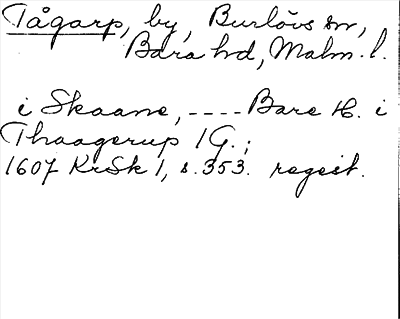 Tågarp, by, Burlövs sn,
Bara hd, Malm. l.
i Skaane, ---- Bare H. i
Thaagerup 1 G.;
1607 KrSk 1, s. 353. regest.